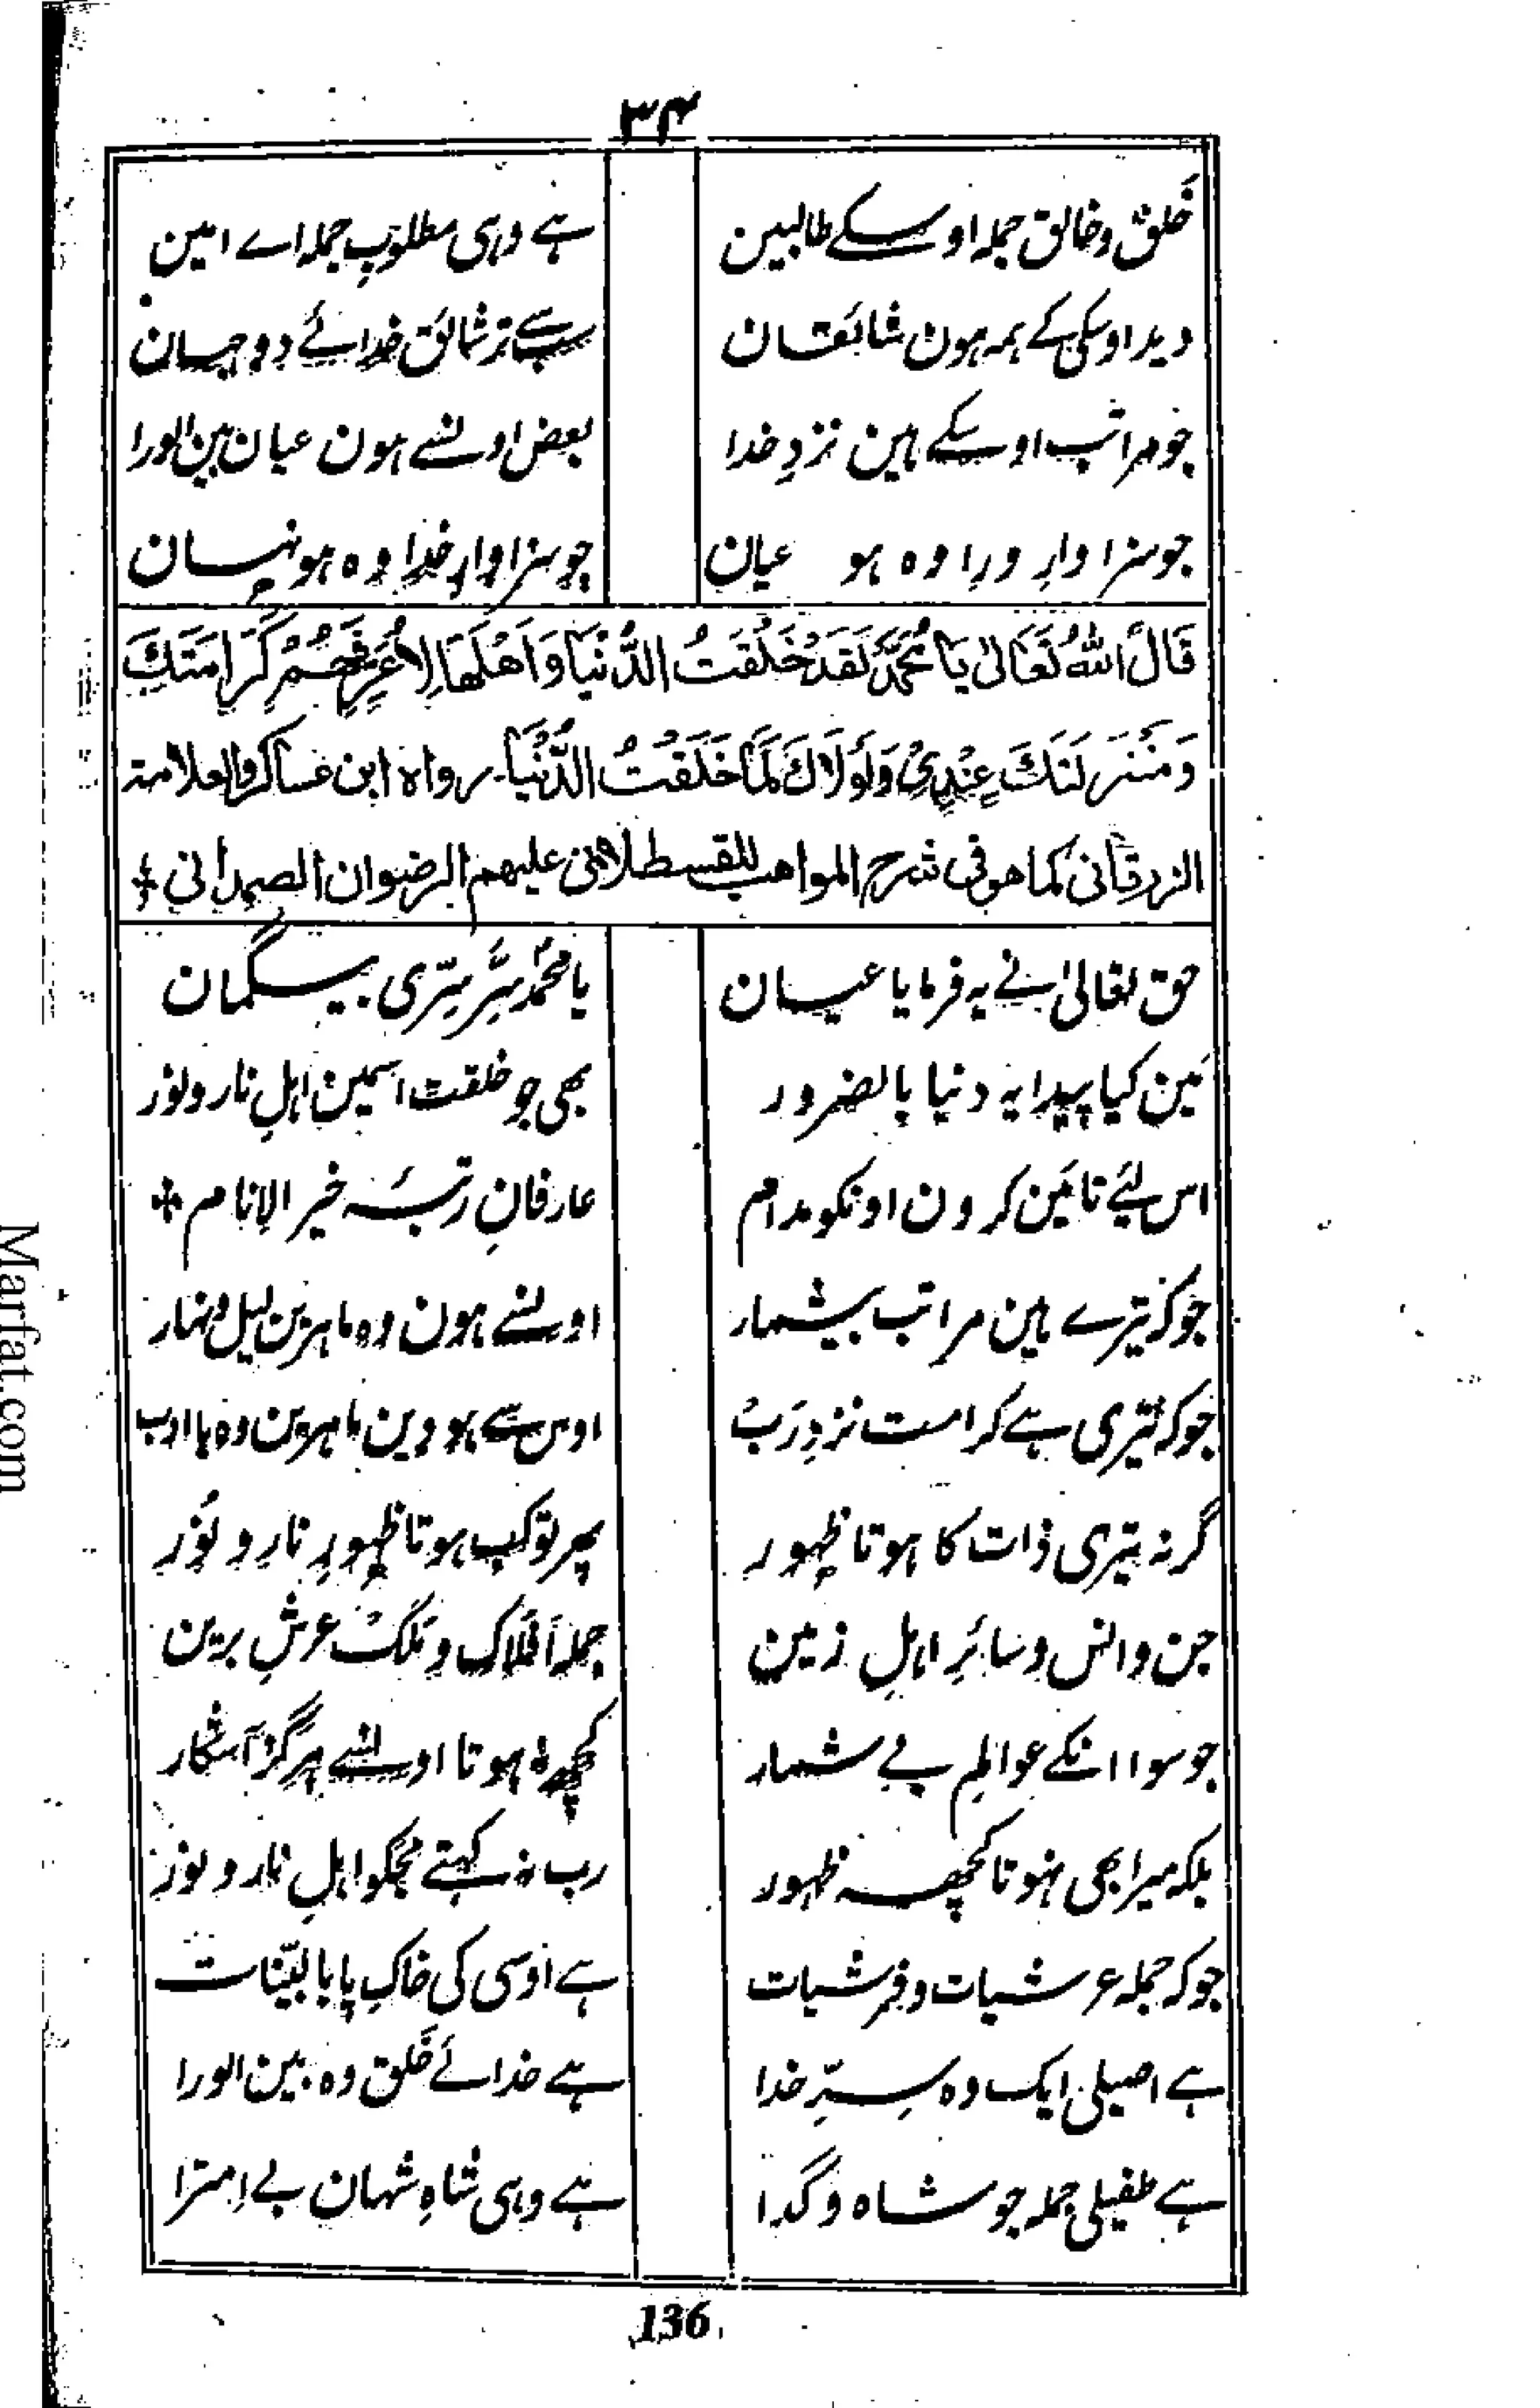 ۳۴
خَلق و خالق جملہ اوسکے طالبین ہے وہی مطلوبِ جملہ اے امین
دید اوسکی کے ہمہ ہون شائقان سب سے تر شائق خدائے دو جہان
جو مراتب اوسکے ہین نزدِ خدا بعض اونسے ہون عیان بین الورا
جو سزاوارِ ورا وہ ہو عیان جو سزاوارِ خدا وہ ہو نہان
قَالَ اللّٰهُ تَعَالٰی یَا مُحَمَّدُ لَقَدْ خَلَقْتُ الدُّنْیَا وَاَهْلَهَا لِاُعَرِّفَهُمْ کَرَامَتَكَ
وَمَنْزِلَتَكَ عِنْدِیْ وَلَوْلَاكَ لَمَا خَلَقْتُ الدُّنْیَا۔ رواہ ابن عساکر والعلامة
الزرقانی کما هو فی شرح المواهب للقسطلانی علیهم الرضوان الصمدانی
حق تعالیٰ نے یہ فرمایا عیان یا محمدؐ سِرِّ سِرّی بیگمان
مَین کیا پیدا یہ دنیا بالضرور بھی جو خلقت اسمین اہلِ نار و نور
اس لئے تا مَین کرون اونکو مدام عارفانِ رتبۂ خیر الانام
جو کہ تیرے ہین مراتب بیشمار اونسے ہون وہ ماہرین لیل و نہار
جو کہ تیری ہے کرامت نزدِ رَب اوس سے ہووین ماہرین وہ با ادب
گر نہ تیری ذات کا ہوتا ظہور پھر تو کب ہوتا ظہورِ نار و نُور
جن و انس و سائرِ اہلِ زمین جملہ اَفلاک و مَلَک عرشِ برین
جو سوا انکے عوالم بے شمار کچھ نہ ہوتا اونسے ہرگز آشکار
بلکہ میرا بھی نہوتا کچھ ظہور رب نہ کہتے مجکو اہلِ نار و نور
جو کہ جملہ عرشیات و فرشیات ہے اوسی کی خاکِ پا بالبیّنات
ہے اصیلی ایک وہ سِرِّ خدا ہے خدائے خَلق وہ بین الورا
ہے طفیلی جملہ جو شاہ و گدا ہے وہی شاہِ شہان بے اِمترا
136
Marfat.com